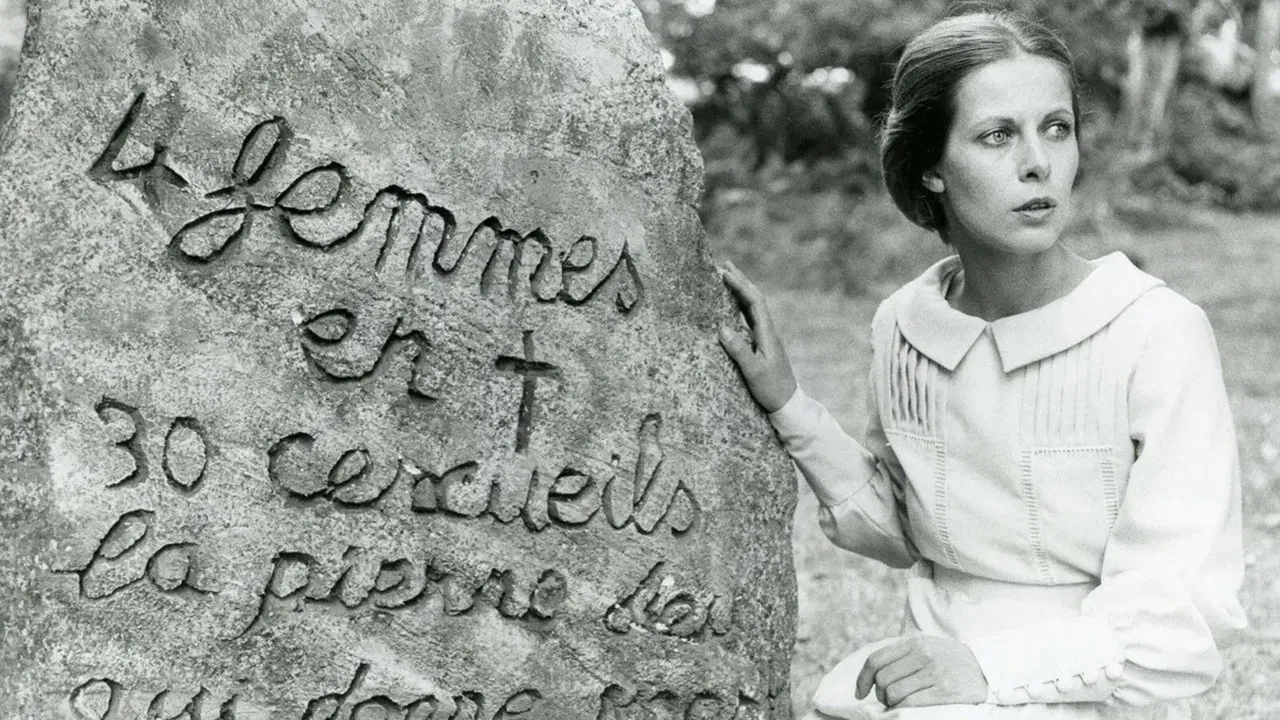 4 femmes
en †
30 cercueils
la pierre Dieu
qui donne